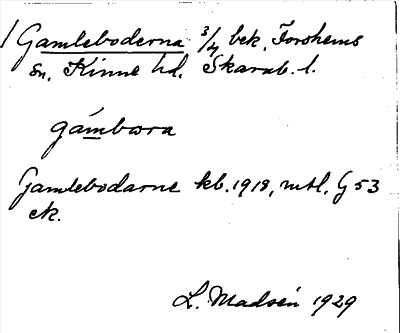 1 Gamleboderna 3/4 bek. Forshems
sn, Kinne hd. Skarab. l.
gámbωra
Gamlebodarne kb. 1918, mtl, G 53
ek.
L. Madsén 1929